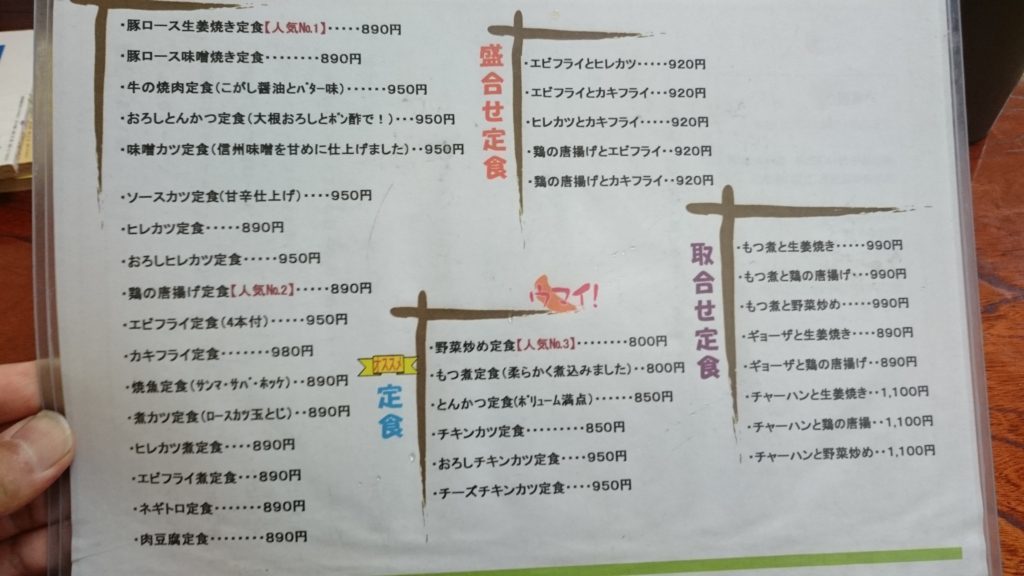 ・豚ロース生姜焼き定食【人気№1】・・・・・890円
・豚ロース味噌焼き定食・・・・・・・・890円
・牛の焼肉定食(こがし醤油とバター味)・・・・・・950円
・おろしとんかつ定食(大根おろしとポン酢で!)・・・950円
・味噌カツ定食(信州味噌を甘めに仕上げました)・・950円
・ソースカツ定食(甘辛仕上げ)・・・・950円
・ヒレカツ定食・・・・・890円
・おろしヒレカツ定食・・・・・950円
・鶏の唐揚げ定食【人気№2】・・・・・890円
・エビフライ定食(4本付)・・・・・950円
・カキフライ定食・・・・・・980円
・焼魚定食(サンマ・サバ・ホッケ)・・890円
・煮カツ定食(ロースカツ玉とじ)・・890円
・ヒレカツ煮定食・・・・890円
・エビフライ煮定食・・・890円
・ネギトロ定食・・・・・・・890円
・肉豆腐定食・・・・・・・・890円
盛合せ定食
・エビフライとヒレカツ・・・・・920円
・エビフライとカキフライ・・・・920円
・ヒレカツとカキフライ・・・・・920円
・鶏の唐揚げとエビフライ・・920円
・鶏の唐揚げとカキフライ・・920円
ウマイ!
オススメ
定食
・野菜炒め定食【人気№3】・・・・・・・800円
・もつ煮定食(柔らかく煮込みました)・・800円
・とんかつ定食(ボリューム満点)・・・・・・850円
・チキンカツ定食・・・・・・・・・850円
・おろしチキンカツ定食・・・・950円
・チーズチキンカツ定食・・・・950円
取合せ定食
・もつ煮と生姜焼き・・・・・990円
・もつ煮と鶏の唐揚げ・・・990円
・もつ煮と野菜炒め・・・・・990円
・ギョーザと生姜焼き・・・・890円
・ギョーザと鶏の唐揚げ・・890円
・チャーハンと生姜焼き・・1,100円
・チャーハンと鶏の唐揚・・1,100円
・チャーハンと野菜炒め・・1,100円